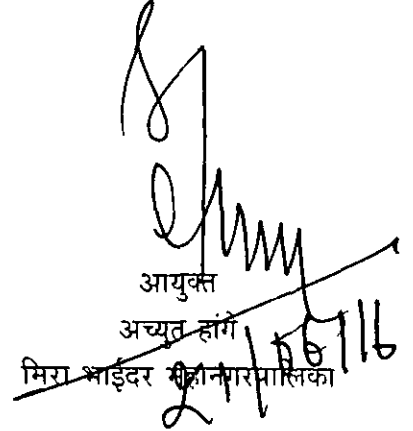 आयुक्त
अच्युत हांगे
मिरा भाईंदर महानगरपालिका